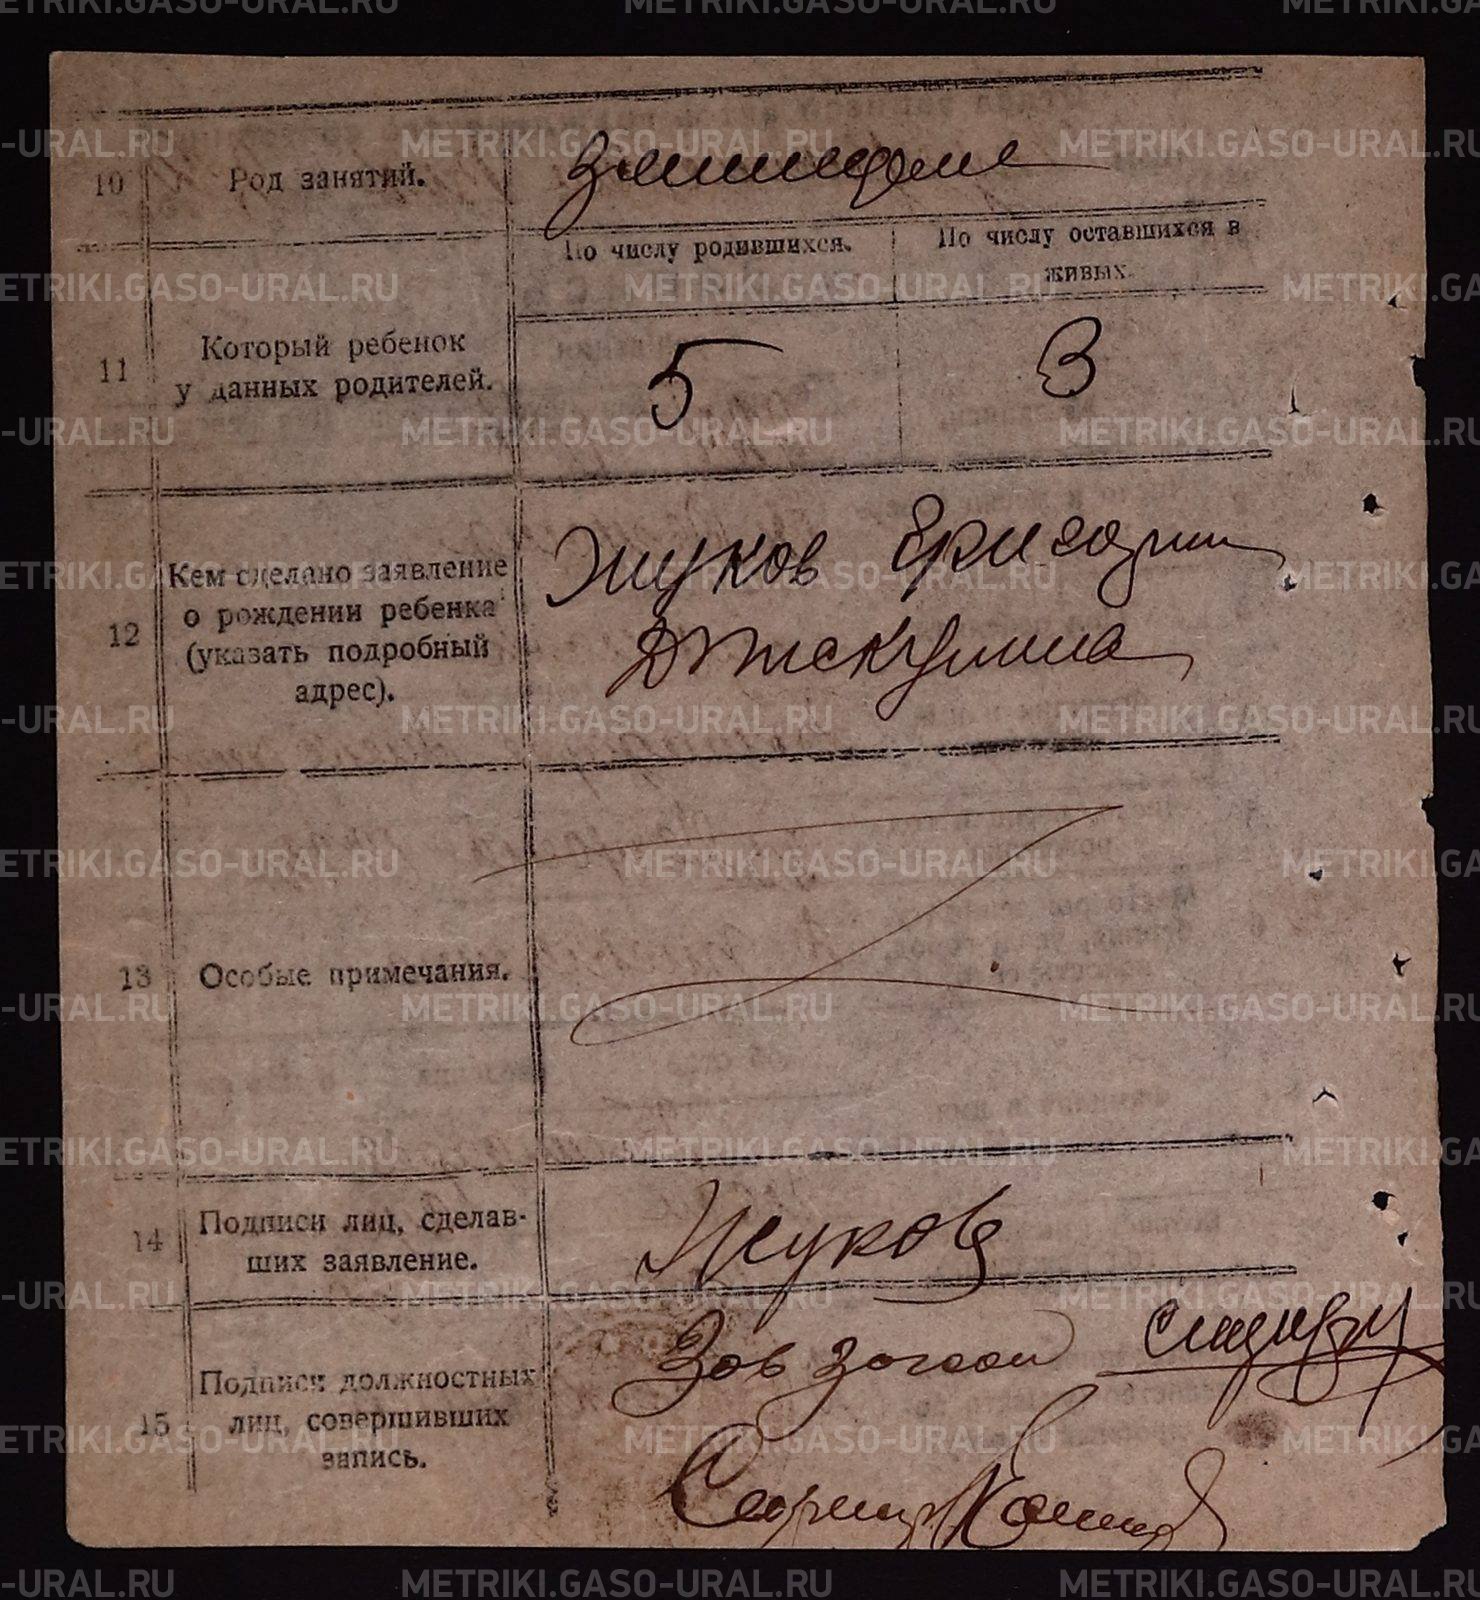 10 Род занятий. Земледелие
По числу родившихся. По числу оставшихся в
живых.
11 Который ребенок
у данных родителей. 5 3
12 Кем сделано заявление Жуков
о рождении ребенка
(указать подробный
адрес).
13 Особые примечания.
14 Подписи лиц, сделав-
ших заявление. Жуков
15 Подписи должностных Зав
лиц, совершивших
запись.
METRIKI.GASO-URAL.RU